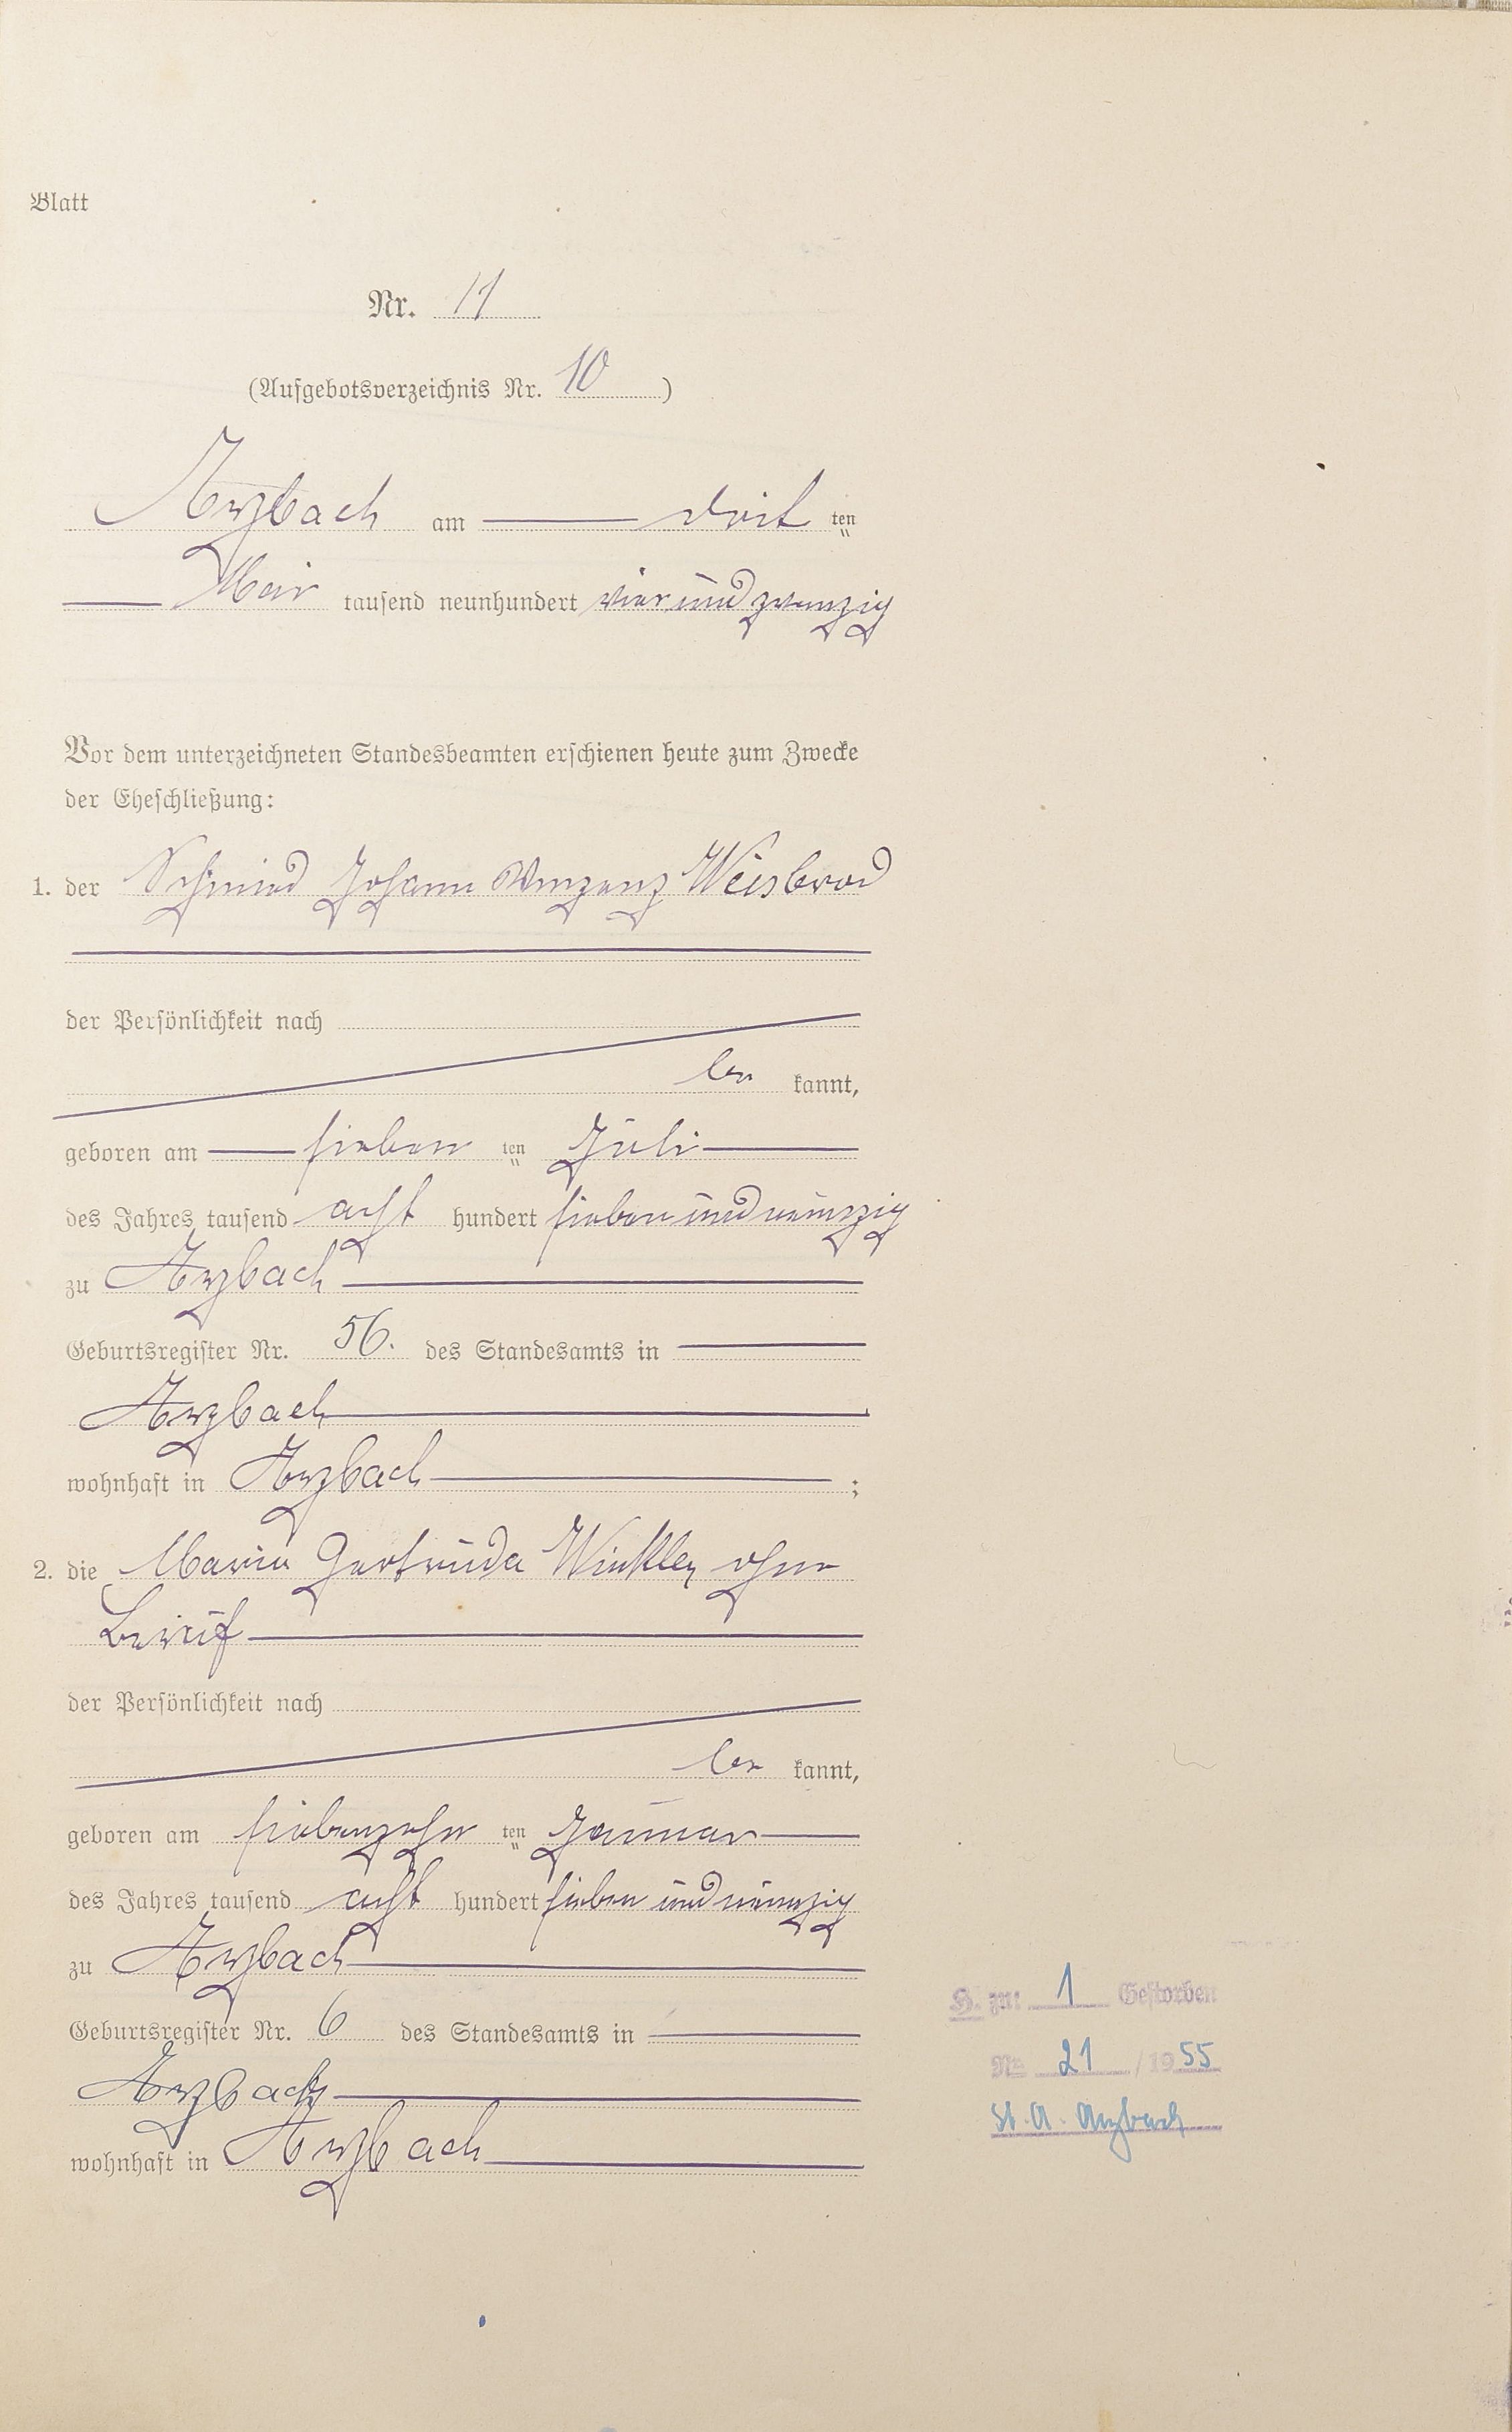 Blatt
Nr. 11
(Aufgebotsverzeichnis Nr. 10)
Arzbach am drit ten
Mai tausend neunhundert vierundzwanzig
Vor dem unterzeichneten Standesbeamten erschienen heute zum Zwecke
der Eheschließung:
1. der Schmied Johann Vinzenz Weisbrod
der Persönlichkeit nach
be kannt,
geboren am sieben ten Juli
des Jahres tausend acht hundert siebenundneunzig
zu Arzbach
Geburtsregister Nr. 56. des Standesamts in
Arzbach
wohnhaft in Arzbach ;
2. die Maria Gertruda Winkler, ohne
Beruf
der Persönlichkeit nach
be kannt,
geboren am siebenzehn ten Januar
des Jahres tausend acht hundert sieben und neunzig
zu Arzbach
Geburtsregister Nr. 6 des Standesamts in
Arzbach
wohnhaft in Arzbach
H. zu: 1 Gestorben
Nr. 21 / 1955
St. A. Arzbach